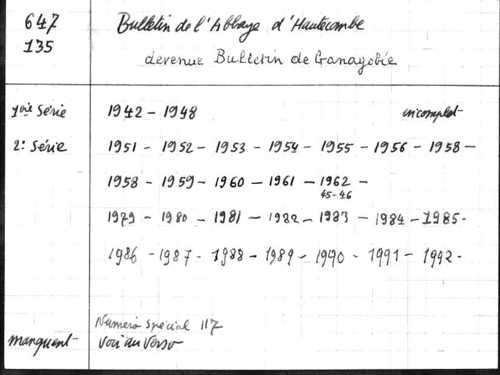 647 Bulletin de l'Abbaye d'Hautecombe
135 devenue Bulletin de Ganagobie
1ère Série 1942 - 1948 incomplet
2e Série 1951 - 1952 - 1953 - 1954 - 1955 - 1956 - 1958 -
1958 - 1959 - 1960 - 1961 - 1962 -
45-46
1979 - 1980 - 1981 - 1982 - 1983 - 1984 - 1985 -
1986 - 1987 - 1988 - 1989 - 1990 - 1991 - 1992 -
Numéro spécial 117
manquent voir au verso